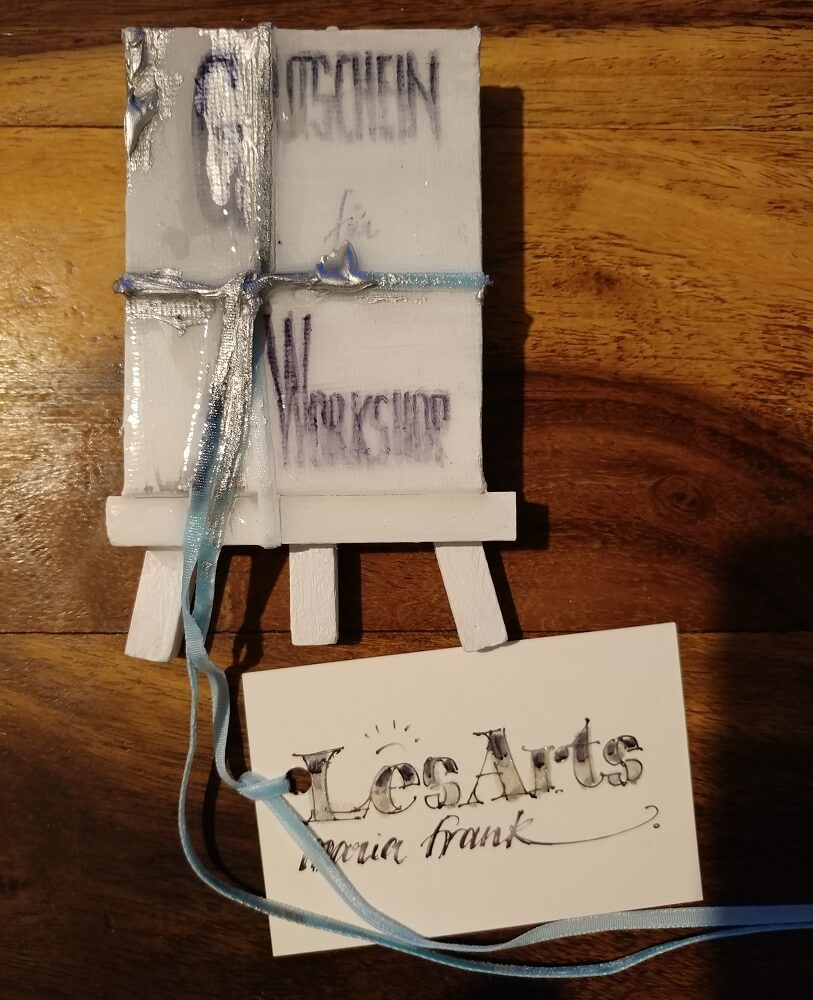 GUTSCHEIN
für
WORKSHOP
LesArts
maria frank